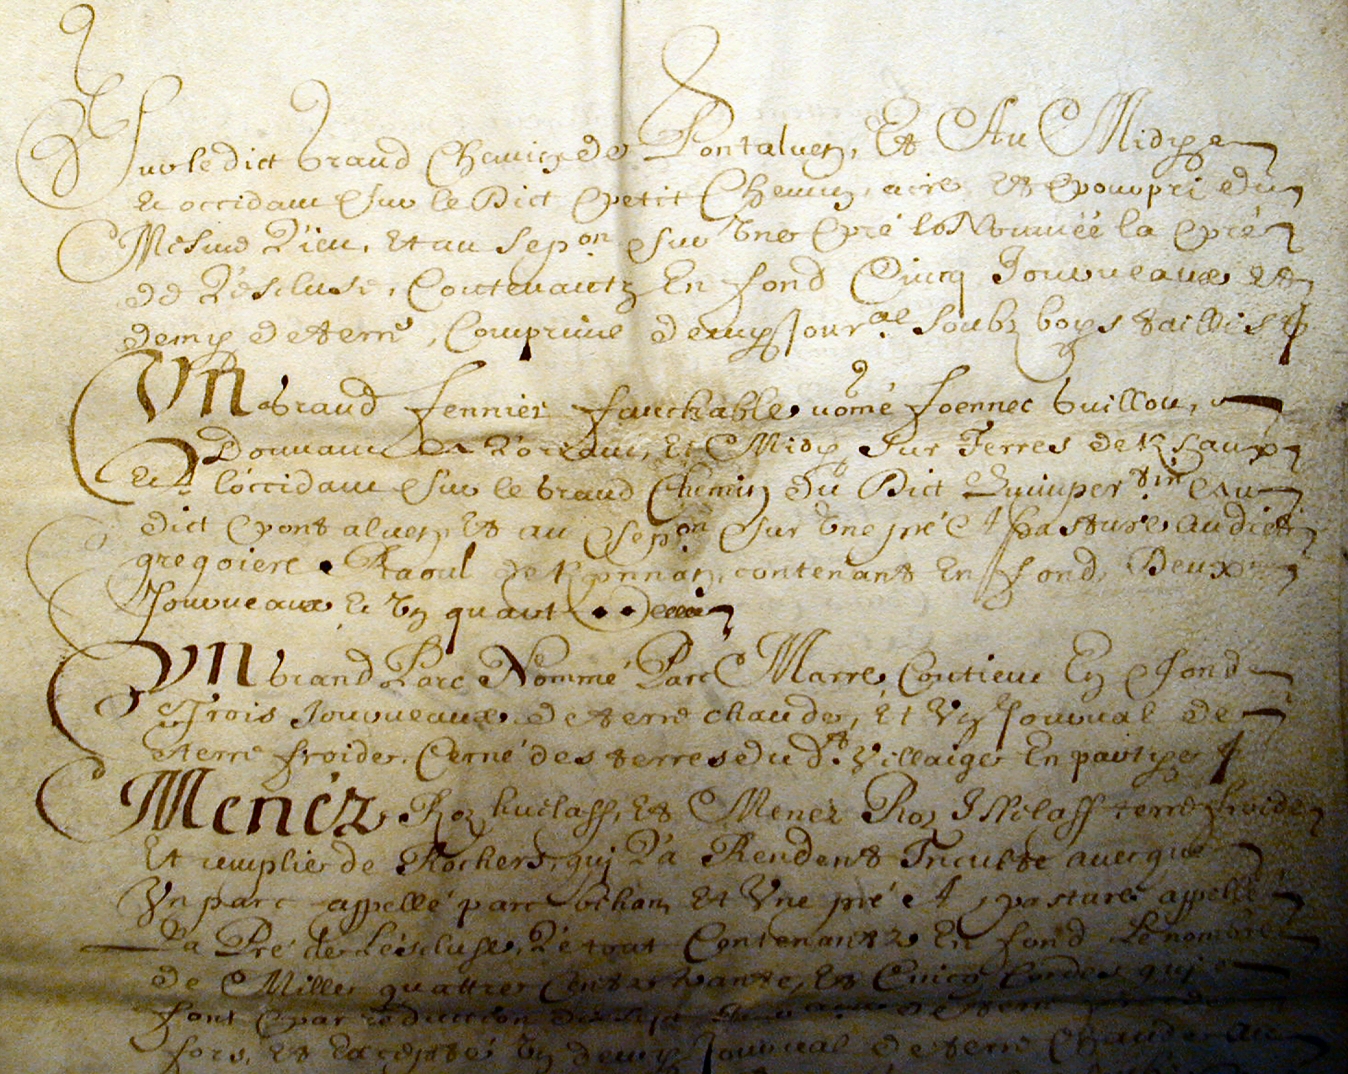 Sur le dict Grand Chemin de Pontaluen, Et Au Midy
Et occidant Sur le Dict petit Chemin, aire Et pourpri du
Mesme Lieu, Et au Sepon Sur Une Pré Nommée la pré
de L'escluse, Contenantz En fond Cincq Journeaux Et
demy de terre, Comprins demy Jour.al Soubz boys taillis
Un Grand fennier fauchable nomé foennec Guillou,
Donnant A L'oriant, Et Midy, Sur Terres de
Et L'occidant Sur le Grand Chemin du Dict Quimper au
dict pont aluen, Et au Sepon Sur Une pré Et pasture audict
gregoiere Raoul de contenant En fond, Deux
Journeaux Et Un quart Demi
Un Grand Parc Nommé Parc Marre, Contient En fond
Trois Journeaux de terre chaude, Et Un Journal de
terre froide, Cerné des terres dud.t Villaige En partye
Menéz Roz huelaff, Et Menez Roz Isselaff terre froide
Et remplie de Rochers, qui La Rendent Inculte avecque
Un parc appellé parc bihan, Et Une pré et pasture appellé
La Pré de L'escluse, Le tout Contenantz En fond Le nombre
de Mille quattre Centz Et Cincq Cordes qui
font par reduction dix sept Journeaux de terre
fors, Et Excepté Un demy Journal de terre Chaude au